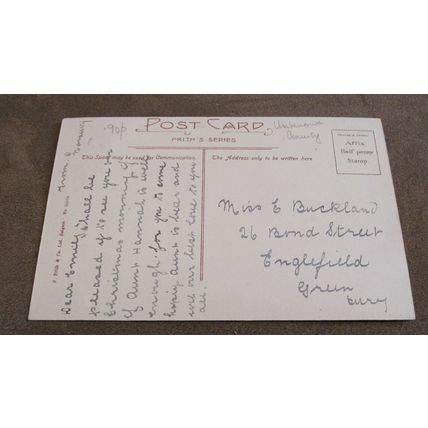 POST CARD
FRITH'S SERIES
This Space may be used for Communication.
The Address only to be written here
Affix
Half penny
Stamp
90p
Unknown
County
Dear Emily I shall be
pleased if to see you on
Christmas morning if
if Aunt Hannah is well
enough for you to come
hoping Aunt is better and
with our best love to you
all.
from E
Miss E Buckland
26 Bond Street
Englefield
Green
Surry